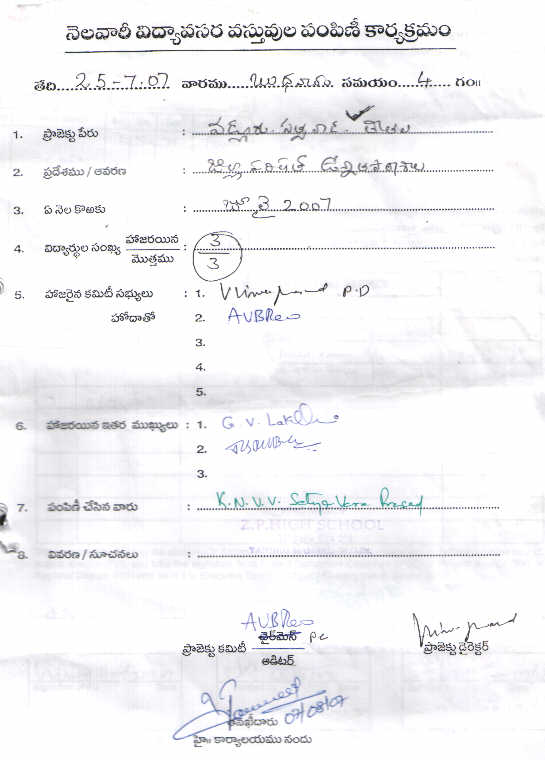 నెలవారీ విద్యావసర వస్తువుల పంపిణీ కార్యక్రమం
తేది....25-7-07 వారము....బుధవారం సమయం....4.... గం॥
1. ప్రాజెక్టు పేరు :
2. ప్రదేశము / ఆవరణ : జిల్లా పరిషత్
3. ఏ నెల కొఱకు : జూలై 2007
4. విద్యార్థుల సంఖ్య హాజరయిన : 3
మొత్తము 3
5. హాజరైన కమిటీ సభ్యులు : 1. P.D
హోదాతో 2. AVBRao
3.
4.
5.
6. హాజరయిన ఇతర ముఖ్యులు : 1. G. V. Lak
2.
3.
7. పంపిణీ చేసిన వారు : K.N.V.V. Satya Vara Prasad
Z.P.HIGH SCHOOL
8. వివరణ / సూచనలు :
AVBRao
ప్రాజెక్టు కమిటీ చైర్‌మెన్ PC
ఆడిటర్
ప్రాజెక్టు డైరెక్టర్
తనిఖీదారు 07/08/07
హై॥ కార్యాలయము నందు